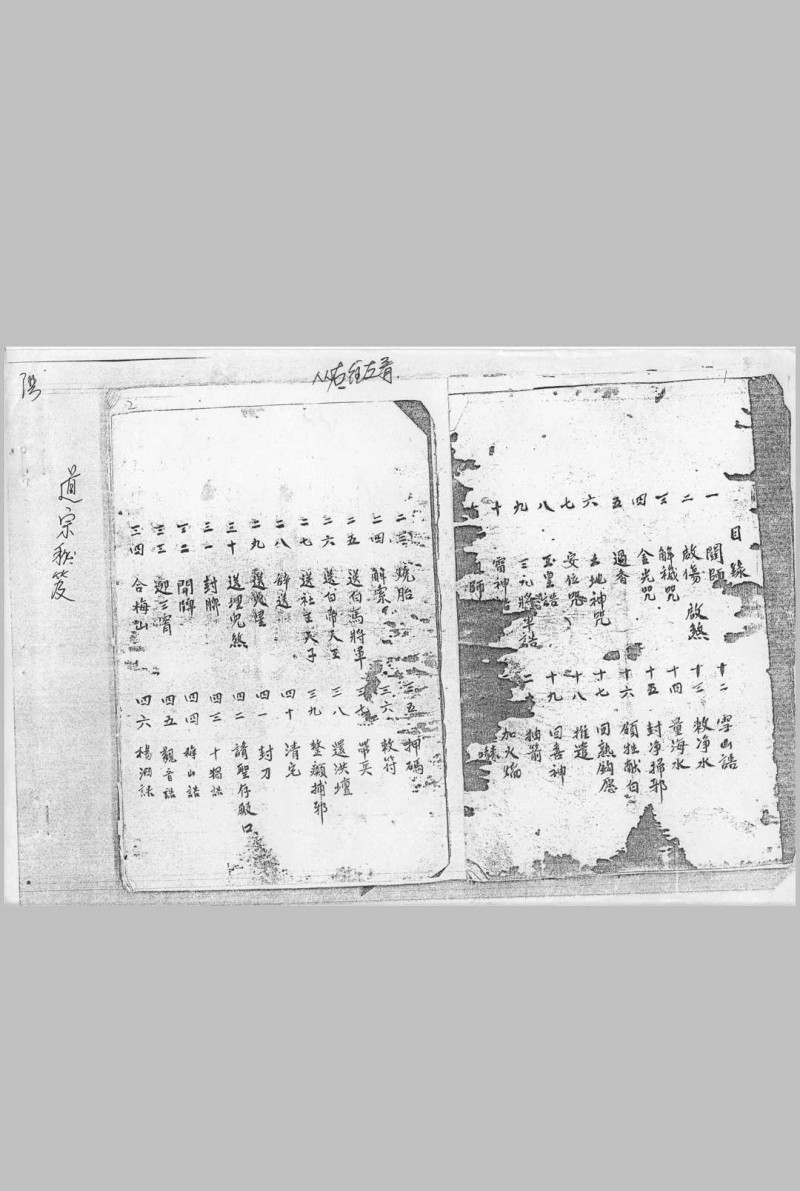 從右往左看
1
目錄
一 閭師 啟煞
二 啟傷
三 解穢咒
四 金光咒
五 過香
六 土地神咒
七 安位咒
八 玉皇誥
九 三元將軍誥
十 雷神誥
師
十二 雪山誥
十三 敕净水
十四 量海水
十五 封净掃邪
十六 領牲献白
十七 回熟鈎愿
十八 推遣
十九 回喜神
二十 抽箭
加火焰
2
二三 烧胎
二四 解索
二五 送伯高將軍
二六 送白帝天王
二七 送社主天子
二八 辞送
二九
三十 送埋兒煞
三一 封牌
三二 開牌
三三 迎三霄
三四 合梅山
三五 押碼
三六 敕符
三七 帶兵
三八 還洪壇
三九 整顏捕邪
四十 清宅
四一 封刀
四二 請聖仔殿口
四三 十招誥
四四 梅山誥
四五 觀音誥
四六 楊泗誥
道宗秘笈